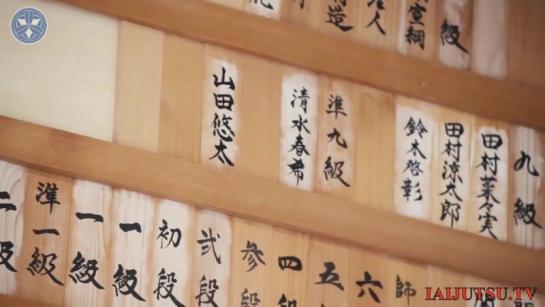 級
九級
田村涼太郎
鈴木啓彰
準九級
清水春希
山田悠太
師
六
五
四段
参段
弐段
初段
一級
一級
準一級
二級
IAIJUTSU.TV